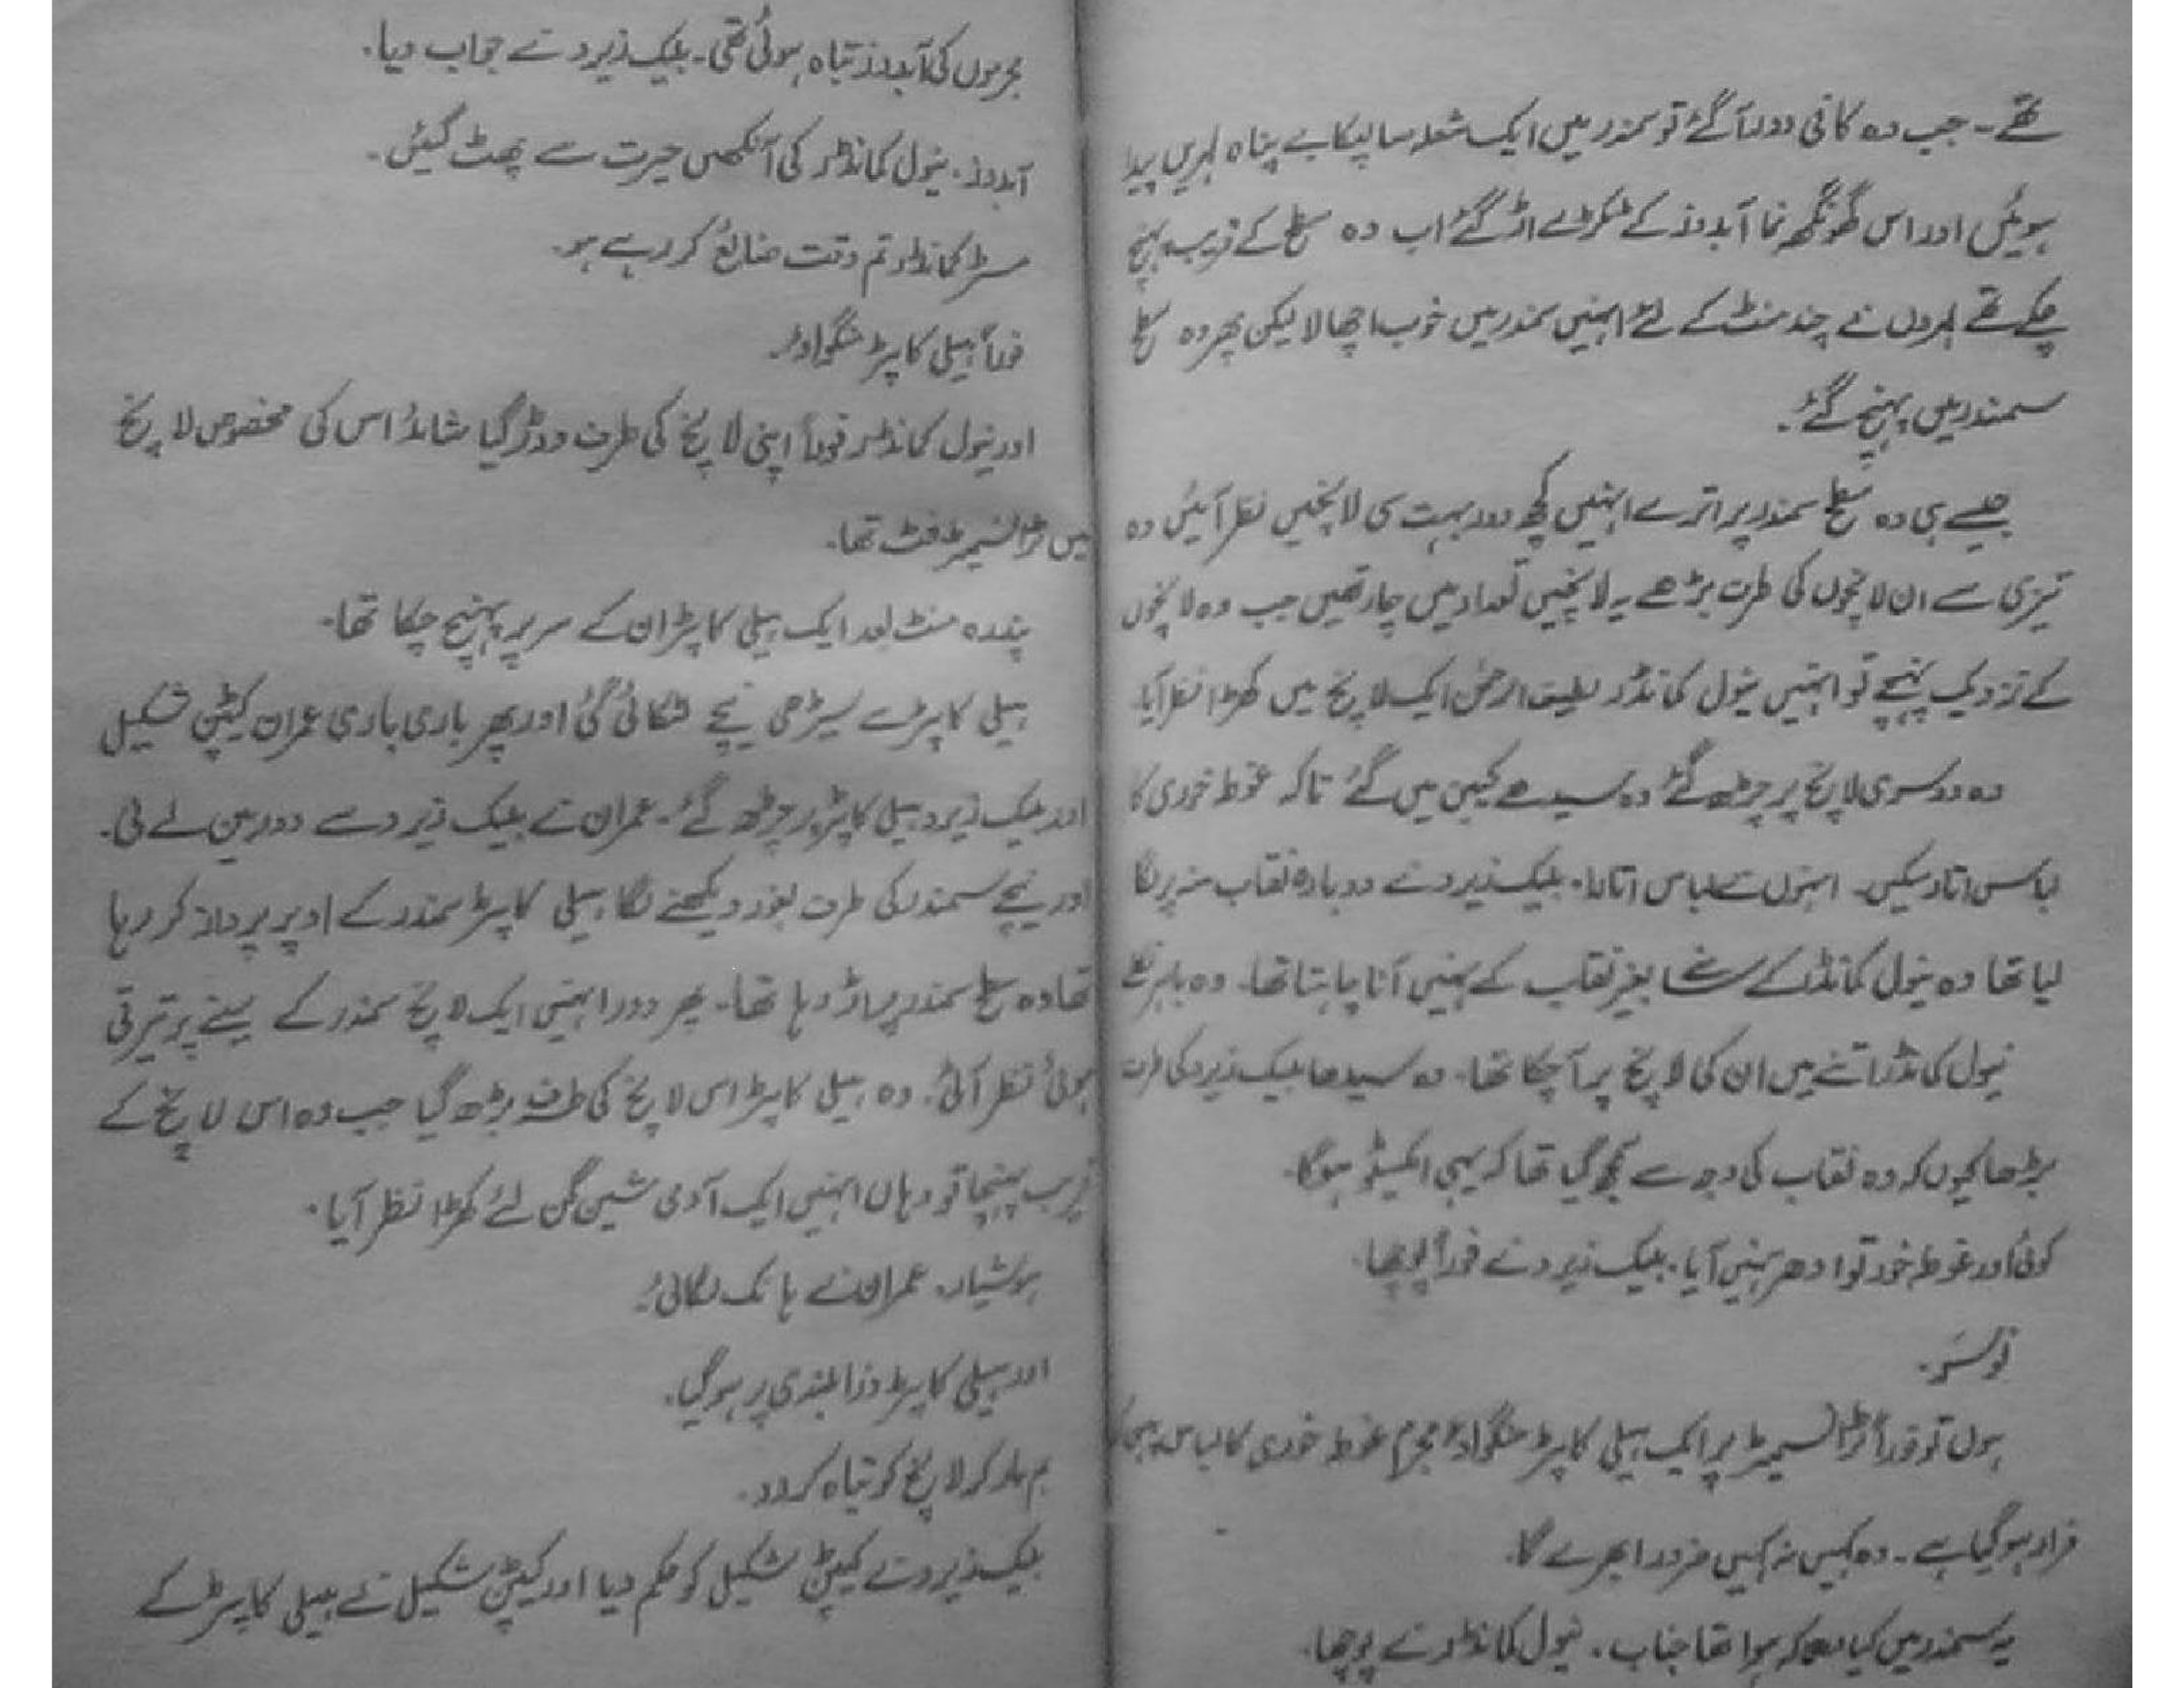 تھے ۔ جب وہ کافی دور آگئے تو سمندر میں ایک شعلہ سا لپکا بے پناہ لہریں پیدا
ہوئیں اور اس گھونگھہ نما آبدوز کے ٹکڑے اڑ گئے اب وہ سطح کے قریب پہنچ
چکے تھے لہروں نے چند منٹ کے لئے انہیں سمندر میں خوب اچھالا لیکن پھر وہ سطح
سمندر میں پہنچ گئے۔
جیسے ہی وہ سطح سمندر پر اترے انہیں کچھ دور بہت سی لانچیں نظر آئیں وہ
تیزی سے ان لانچوں کی طرف بڑھے یہ لانچیں تعداد میں چار تھیں جب وہ لانچوں
کے نزدیک پہنچے تو انہیں نیول کمانڈر ایک لانچ میں کھڑا نظر آیا۔
وہ دوسری لانچ پر چڑھ گئے وہ سیدھے کیبن میں گئے تاکہ غوطہ خوری کا
لباس اتار سکیں۔ انہوں نے لباس اتارا۔ بلیک زیرو نے دوبارہ نقاب منہ پر لگا
لیا تھا وہ نیول کمانڈر کے سامنے بغیر نقاب کے نہیں آنا چاہتا تھا۔ وہ باہر نکلے
نیول کمانڈر اتنے میں ان کی لانچ پر آچکا تھا۔ وہ سیدھا بلیک زیرو کی طرف
بڑھا کیوں کہ وہ نقاب کی وجہ سے سمجھ گیا تھا کہ یہی ایکسٹو ہوگا۔
کوئی اور غوطہ خور تو ادھر نہیں آیا۔ بلیک زیرو نے فوراً پوچھا۔
نو سر۔
ہوں تو فوراً ٹرانسمیٹر پر ایک ہیلی کاپٹر منگواؤ مجرم غوطہ خوری کا لباس پہن کر
فرار ہو گیا ہے ۔ وہ کہیں نہ کہیں ضرور ابھرے گا۔
یہ سمندر میں کیا دھماکہ ہوا تھا جناب ۔ نیول کمانڈر نے پوچھا۔
مجرموں کی آبدوز تباہ ہوئی تھی۔ بلیک زیرو نے جواب دیا۔
آبدوز۔ نیول کمانڈر کی آنکھیں حیرت سے پھٹ گیئں۔
مسٹر کمانڈر تم وقت ضائع کر رہے ہو۔
فوراً ہیلی کاپٹر منگواؤ۔
اور نیول کمانڈر فوراً اپنی لانچ کی طرف دوڑ گیا شائد اس کی مخصوص لانچ
میں ٹرانسمیٹر فٹ تھا۔
پندرہ منٹ بعد ایک ہیلی کاپٹر ان کے سر پر پہنچ چکا تھا۔
ہیلی کاپٹر سے سیڑھی نیچے لٹکائی گئی اور پھر باری باری عمران کیپٹن شکیل
اور بلیک زیرو ہیلی کاپٹر پر چڑھ گئے۔ عمران نے بلیک زیرو سے دوربین لے لی۔
اور نیچے سمندر کی طرف بغور دیکھنے لگا ہیلی کاپٹر سمندر کے اوپر پرواز کر رہا
تھا وہ سطح سمندر پر اڑ رہا تھا۔ پھر دور انہیں ایک لانچ سمندر کے سینے پر تیرتی
ہوئی نظر آئی۔ وہ ہیلی کاپٹر اس لانچ کی طرف بڑھ گیا جب وہ اس لانچ کے
قریب پہنچا تو وہاں انہیں ایک آدمی مشین گن لئے کھڑا نظر آیا۔
ہوشیار۔ عمران نے ہانک لگائی۔
اور ہیلی کاپٹر ذرا بلندی پر ہو گیا۔
بم مار کر لانچ کو تباہ کر دو۔
بلیک زیرو نے کیپٹن شکیل کو حکم دیا اور کیپٹن شکیل نے ہیلی کاپٹر کے